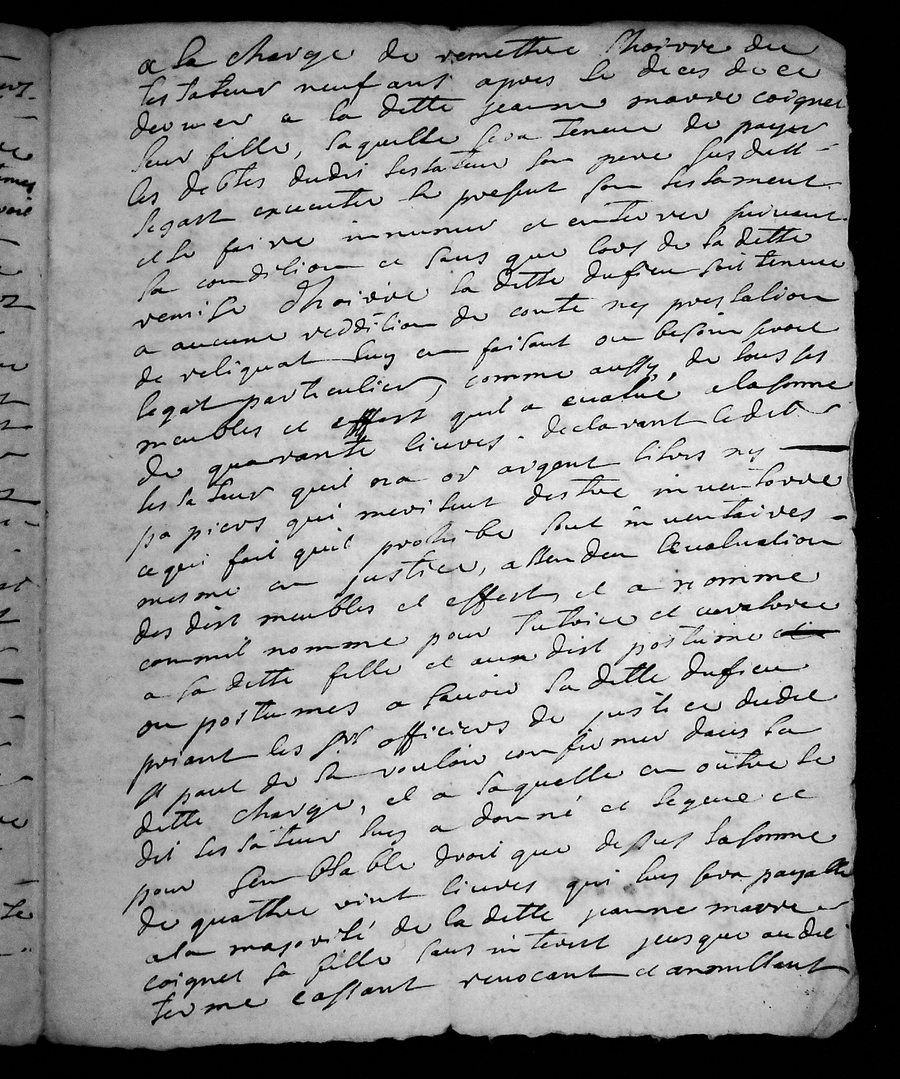 a la charge de remettre lhoirre du
testateur neuf ans apres le deces de ce
dernier a la ditte jeanne marre coignet
leur fille, laquelle sera tenue de payer
les debtes dudit testateur son pere susdett
legast executer le present son testament
et le faire innumer et enterrer suivant
sa condition et sans que lors de la ditte
remise dhoirre la ditte dufieu soit tenue
a aucune reddition de conte ny prestation
de reliquat luy en faisant ou besoin seroit
legat particulier, comme aussy de tous ses
meubles et effect quil a evalué a la somme
de quarante livres. declarant ledit
testateur quil na or argent titres ny
papiers qui meritent destre inventorre
ce qui fait quil prohibe tout inventaires
mesme en justice, attendeu levaluation
des dist meubles et effects et a nomme
commil nomme pour tutrice et curatrice
a sa ditte fille et aux dist postume
ou postumes a savoir la ditte dufieu
priant les srs officiers de justice dudit
st paul de la vouloir confirmer dans la
ditte charge, et a laquelle en outre le
dit testateur luy a donné et legue et
pour semblable droit que dessus la somme
de quattre vint livres qui luy sera payable
a la majorité de la ditte jeanne marre
coignet sa fille sans interest jusque au dit
terme cassant revocant et annullant